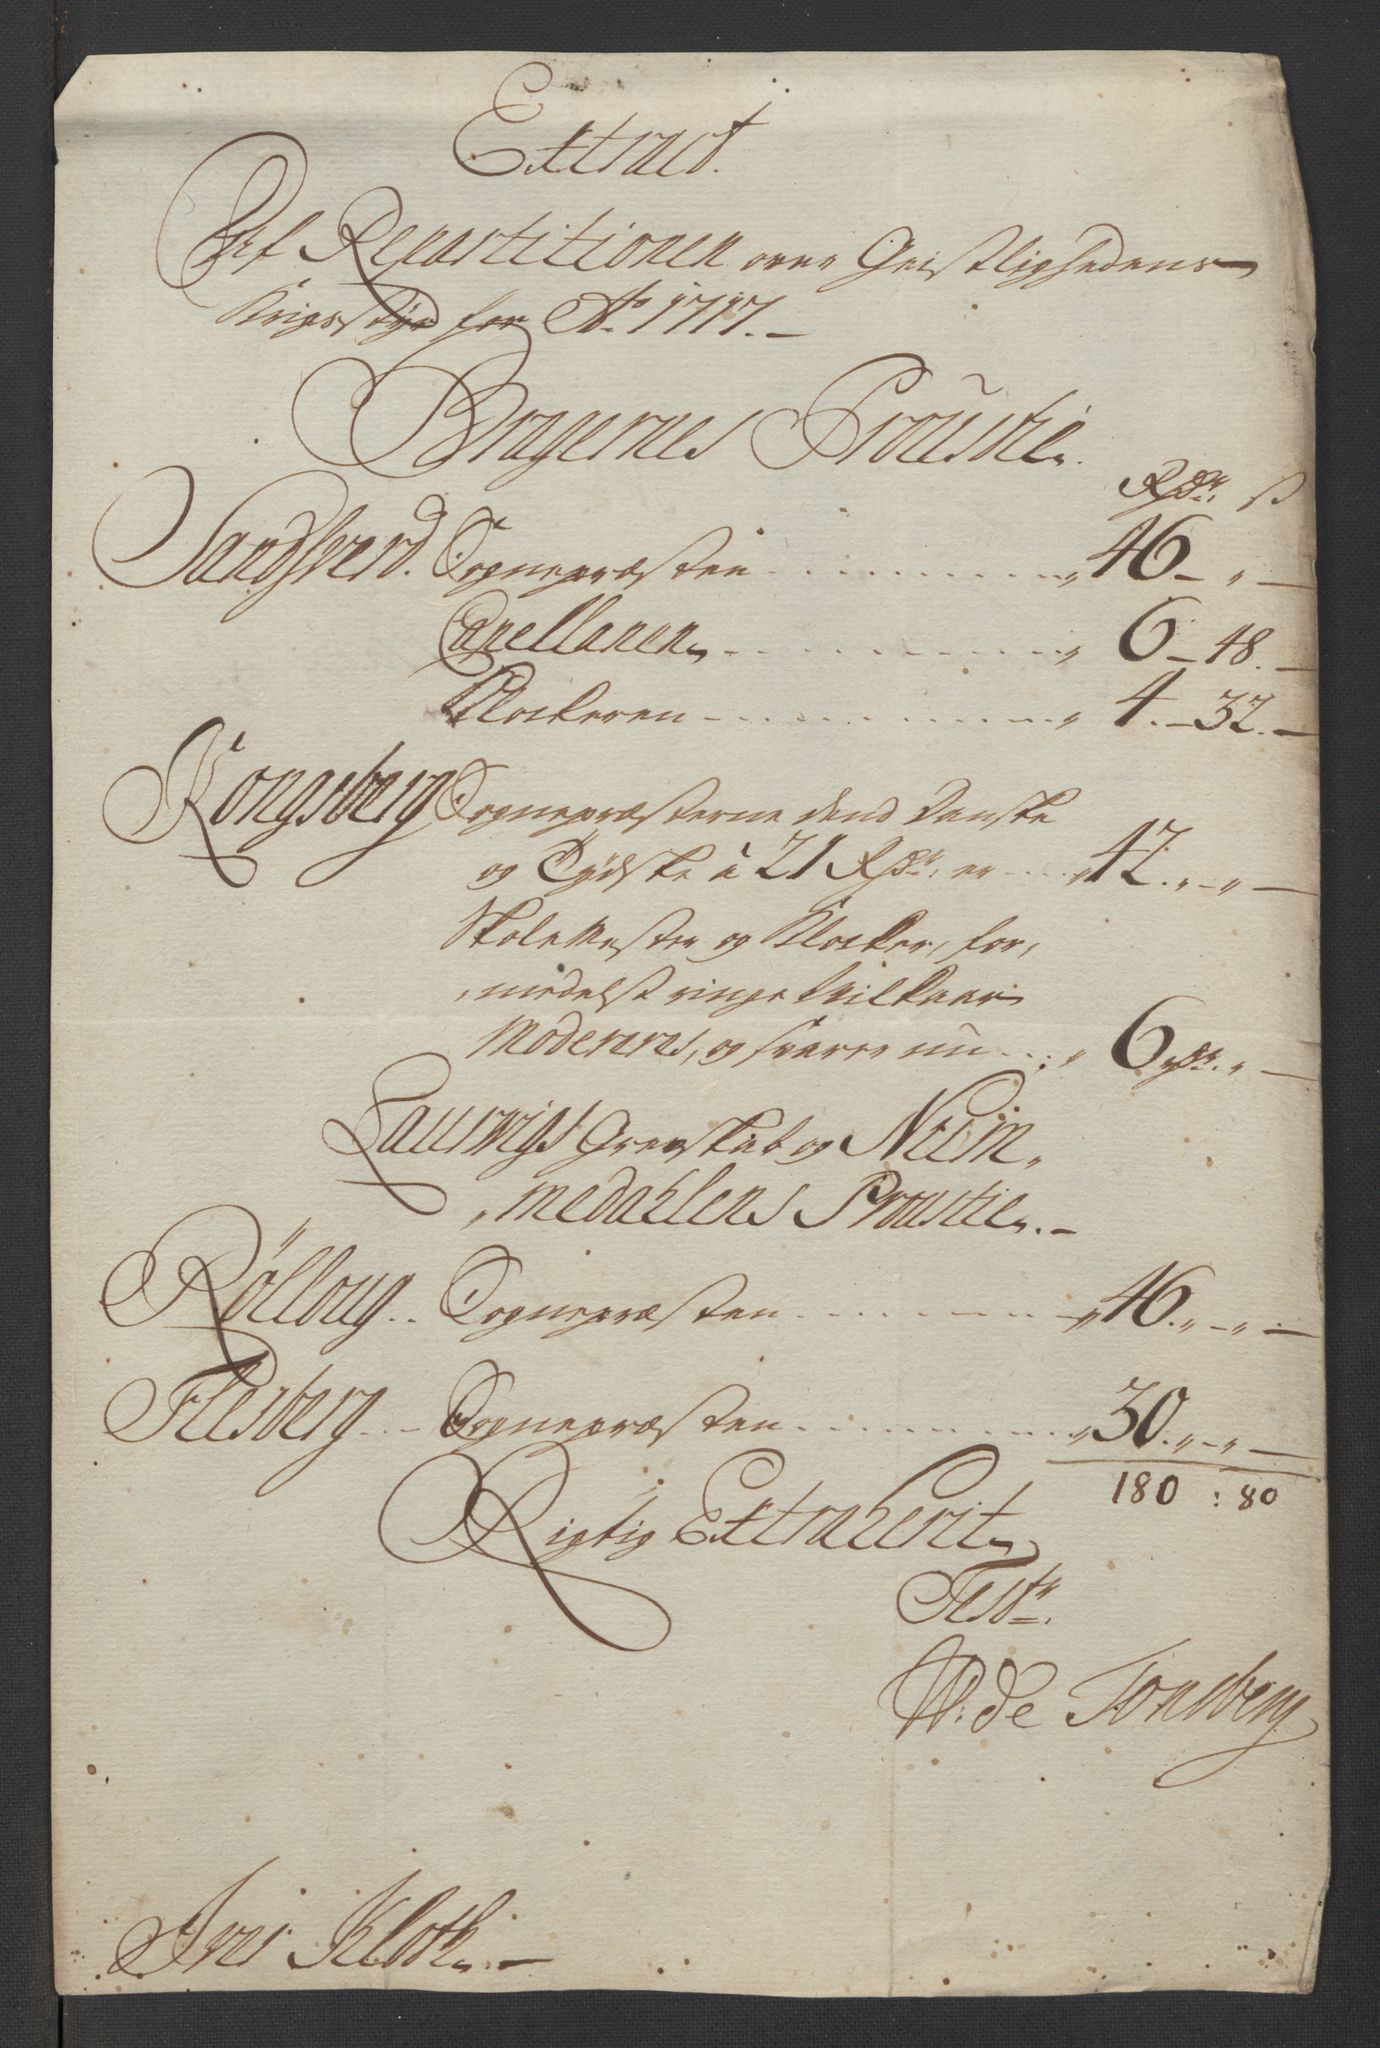 Extract.
Af Repartitionen over Geistlighedens
Krigsstyr for Ao 1717.
Bragernes Proustie.
Rdr. ß
Sandsverd. Sognepræsten . . . . 46 - " -
Capellanen . . . . 6 - 48. -
Klockeren . . . . 4. - 32. -
Kongsberg Sognepræsterne dend Danske
og Tydske à 21 Rdr. er . . . 42. " - " -
Skolemester og Klocker, for,
,medelst ringe Vilkaar
Moderers, og svarer nu . . . 6 rdr. " -
Laurvigs Grevskab og Num,
,medahlens Proustie. -
Rölloug . . Sognepræsten . . . . 46. " - " -
Flesberg . . Sognepræsten . . . . 30. " - " -
180 : 80
Rigtig Extraherit
Test.
W: de Tonsberg
Iver Kloth. -